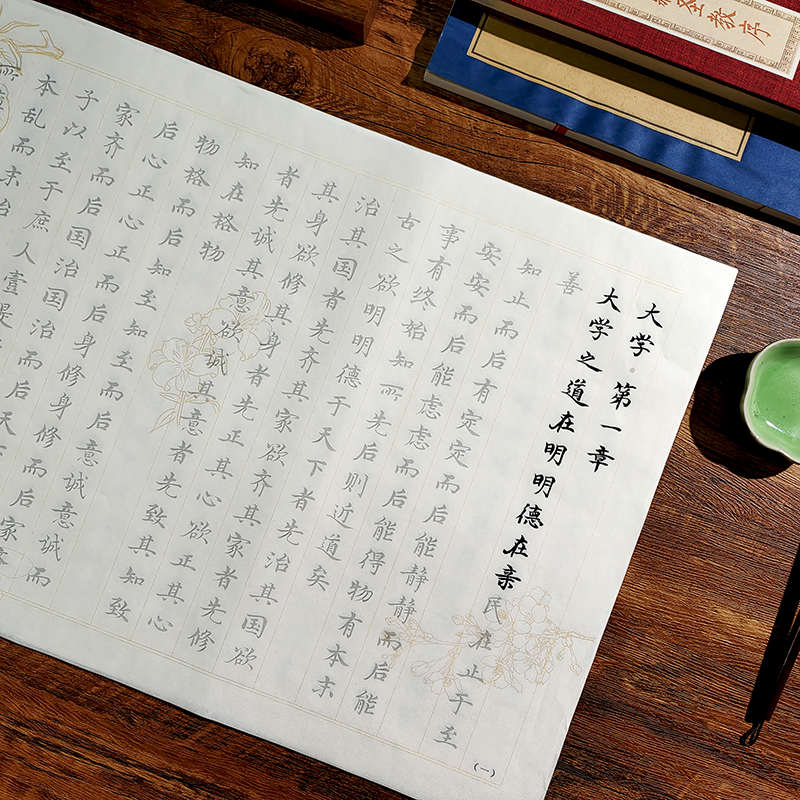 大学·第一章
大学之道在明明德在亲民在止于至
善
知止而后有定定而后能静静而后能
安安而后能虑虑而后能得物有本末
事有终始知所先后则近道矣
古之欲明明德于天下者先治其国欲
治其国者先齐其家欲齐其家者先修
其身欲修其身者先正其心欲正其心
者先诚其意欲诚其意者先致其知致
知在格物
物格而后知至知至而后意诚意诚而
后心正心正而后身修身修而后家齐
家齐而后国治国治而后天下
子以至于庶人壹是
本乱而末治
(一)
圣教序